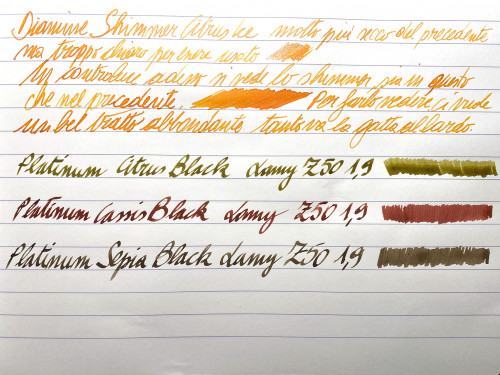 Diamine Shimmer Citrus Ice molto più secco del precedente
ma troppo chiaro per essere usato
In controluce adesso si vede lo shimmer, più in questo
che nel precedente. Per farlo vedere ci vuole
un bel tratto abbondante tanto va la gatta al lardo.
Platinum Citrus Black Lamy Z50 1,9
Platinum Cassis Black Lamy Z50 1,9
Platinum Sepia Black Lamy Z50 1,9